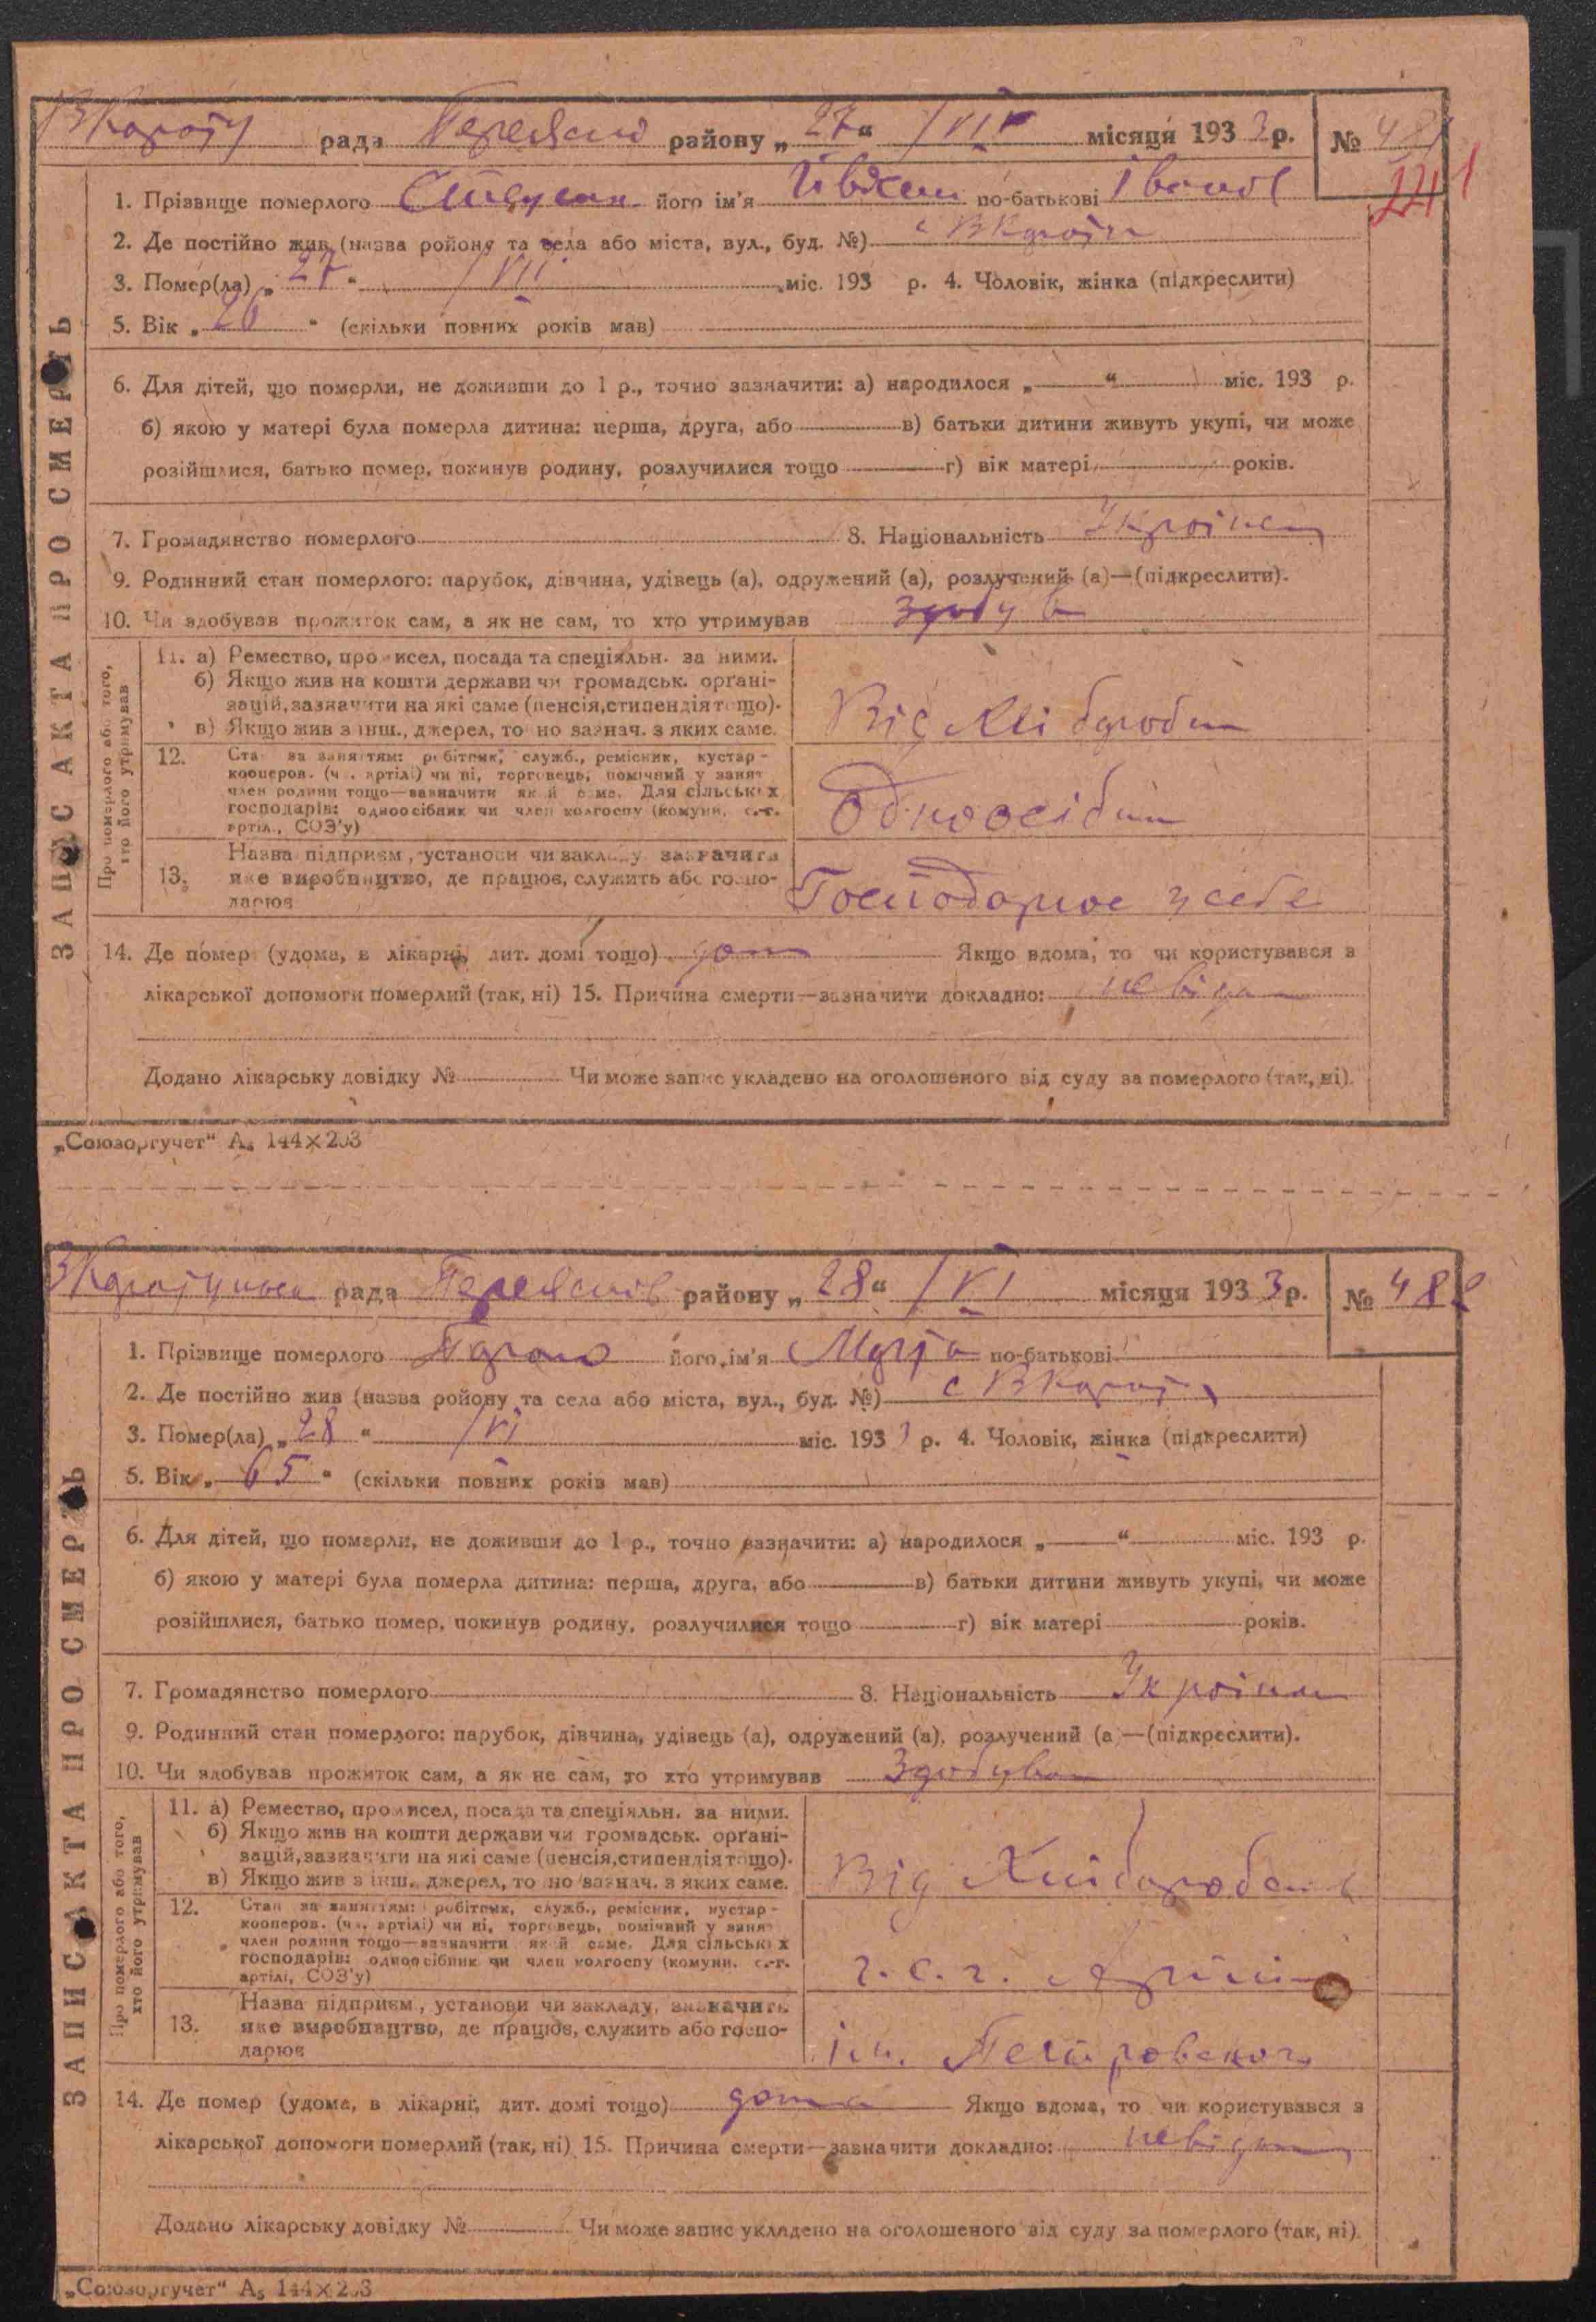 рада району „27“ / VII місяця 1933 р. № 481
241
ЗАПИС АКТА ПРО СМЕРТЬ
1. Прізвище померлого його ім'я по-батькові
2. Де постійно жив (назва ройону та села або міста, вул., буд. №) с
3. Помер(ла) „27“ / VII міс. 193 р. 4. Чоловік, жінка (підкреслити)
5. Вік „26“ (скільки повних років мав)
6. Для дітей, що померли, не доживши до 1 р., точно зазначити: а) народилося „ “ міс. 193 р.
б) якою у матері була померла дитина: перша, друга, або в) батьки дитини живуть укупі, чи може
розійшлися, батько помер, покинув родину, розлучилися тощо г) вік матері років.
7. Громадянство померлого 8. Національність Українец
9. Родинний стан померлого: парубок, дівчина, удівець (а), одружений (а), розлучений (а)—(підкреслити).
10. Чи здобував прожиток сам, а як не сам, то хто утримував здобув
Про померлого або того, хто його утримував
11. а) Ремество, промисел, посада та спеціяльн. за ними.
б) Якщо жив на кошти держави чи громадськ. органі-
зацій, зазначити на які саме (пенсія, стипендія тощо).
в) Якщо жив з інш. джерел, то но зазнач. з яких саме.
Від
12. Стан за заняттям: робітник, служб., ремісник, кустар-
кооперов. (ч. артілі) чи ні, торговець, помічний у занят
член родини тощо—зазначити як й саме. Для сільських
господарів: одноосібник чи член колгоспу (комуни, с.-г.
артіл., СОЗ'у)
Одноосібник
13. Назва підприєм, установи чи закладу зазначити
яке виробництво, де працює, служить або госпо-
дарює
Господарює у себе
14. Де помер (удома, в лікарні, дит. домі тощо) дома Якщо вдома, то чи користувався з
лікарської допомоги померлий (так, ні) 15. Причина смерти—зазначити докладно: невідома
Додано лікарську довідку № Чи може запис укладено на оголошеного від суду за померлого (так, ні).
„Союзоргучет“ А₅ 144×203
рада району „28“ / VI місяця 1933 р. № 482
ЗАПИС АКТА ПРО СМЕРТЬ
1. Прізвище померлого його ім'я по-батькові
2. Де постійно жив (назва ройону та села або міста, вул., буд. №) с
3. Помер(ла) „28“ / VI міс. 1933 р. 4. Чоловік, жінка (підкреслити)
5. Вік „65“ (скільки повних років мав)
6. Для дітей, що померли, не доживши до 1 р., точно зазначити: а) народилося „ “ міс. 193 р.
б) якою у матері була померла дитина: перша, друга, або в) батьки дитини живуть укупі, чи може
розійшлися, батько помер, покинув родину, розлучилися тощо г) вік матері років.
7. Громадянство померлого 8. Національність
9. Родинний стан померлого: парубок, дівчина, удівець (а), одружений (а), розлучений (а)—(підкреслити).
10. Чи здобував прожиток сам, а як не сам, то хто утримував Здобувала
Про померлого або того, хто його утримував
11. а) Ремество, промисел, посада та спеціяльн. за ними.
б) Якщо жив на кошти держави чи громадськ. органі-
зацій, зазначити на які саме (пенсія, стипендія тощо).
в) Якщо жив з інш. джерел, то но зазнач. з яких саме.
Від
12. Стан за заняттям: робітник, служб., ремісник, кустар-
кооперов. (чл. артілі) чи ні, торговець, помічний у занят
член родини тощо—зазначити як й саме. Для сільських
господарів: одноосібник чи член колгоспу (комуни, с.-г.
артілі, СОЗ'у)
13. Назва підприєм, установи чи закладу, зазначить
яке виробництво, де працює, служить або госпо-
дарює
ім. Петровского
14. Де помер (удома, в лікарні, дит. домі тощо) дома Якщо вдома, то чи користувався з
лікарської допомоги померлий (так, ні) 15. Причина смерти—зазначити докладно: невідома
Додано лікарську довідку № Чи може запис укладено на оголошеного від суду за померлого (так, ні).
„Союзоргучет“ А₅ 144×203